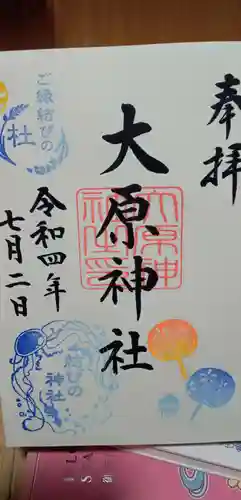 奉拝
大原神社
ご縁結びの
社
令和四年
七月二日
結びの
神社